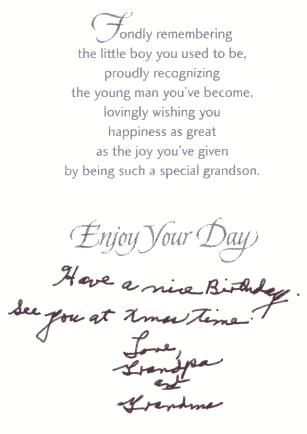 Fondly remembering
the little boy you used to be,
proudly recognizing
the young man you've become,
lovingly wishing you
happiness as great
as the joy you've given
by being such a special grandson.
Enjoy Your Day
Have a nice Birthday.
See you at Xmas time.
Love,
Grandpa
and
Grandma